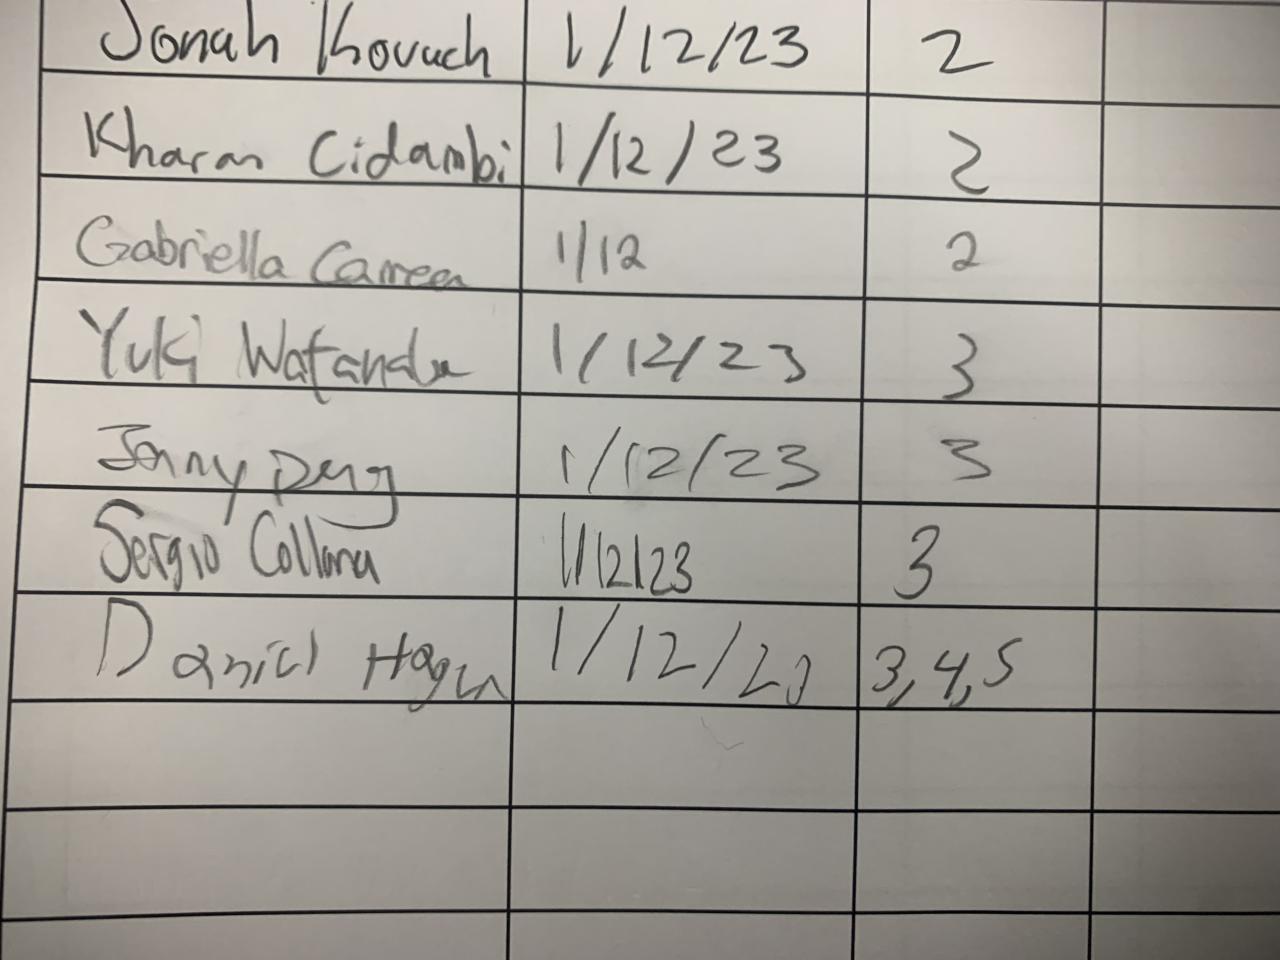 Jonah Kovach 1/12/23 2
Kharan Cidambi 1/12/23 2
Gabriella Carreen 1/12 2
Yuki Watanabe 1/12/23 3
Jenny Deng 1/12/23 3
Sergio 1/12/23 3
Daniel Hagen 1/12/23 3,4,5